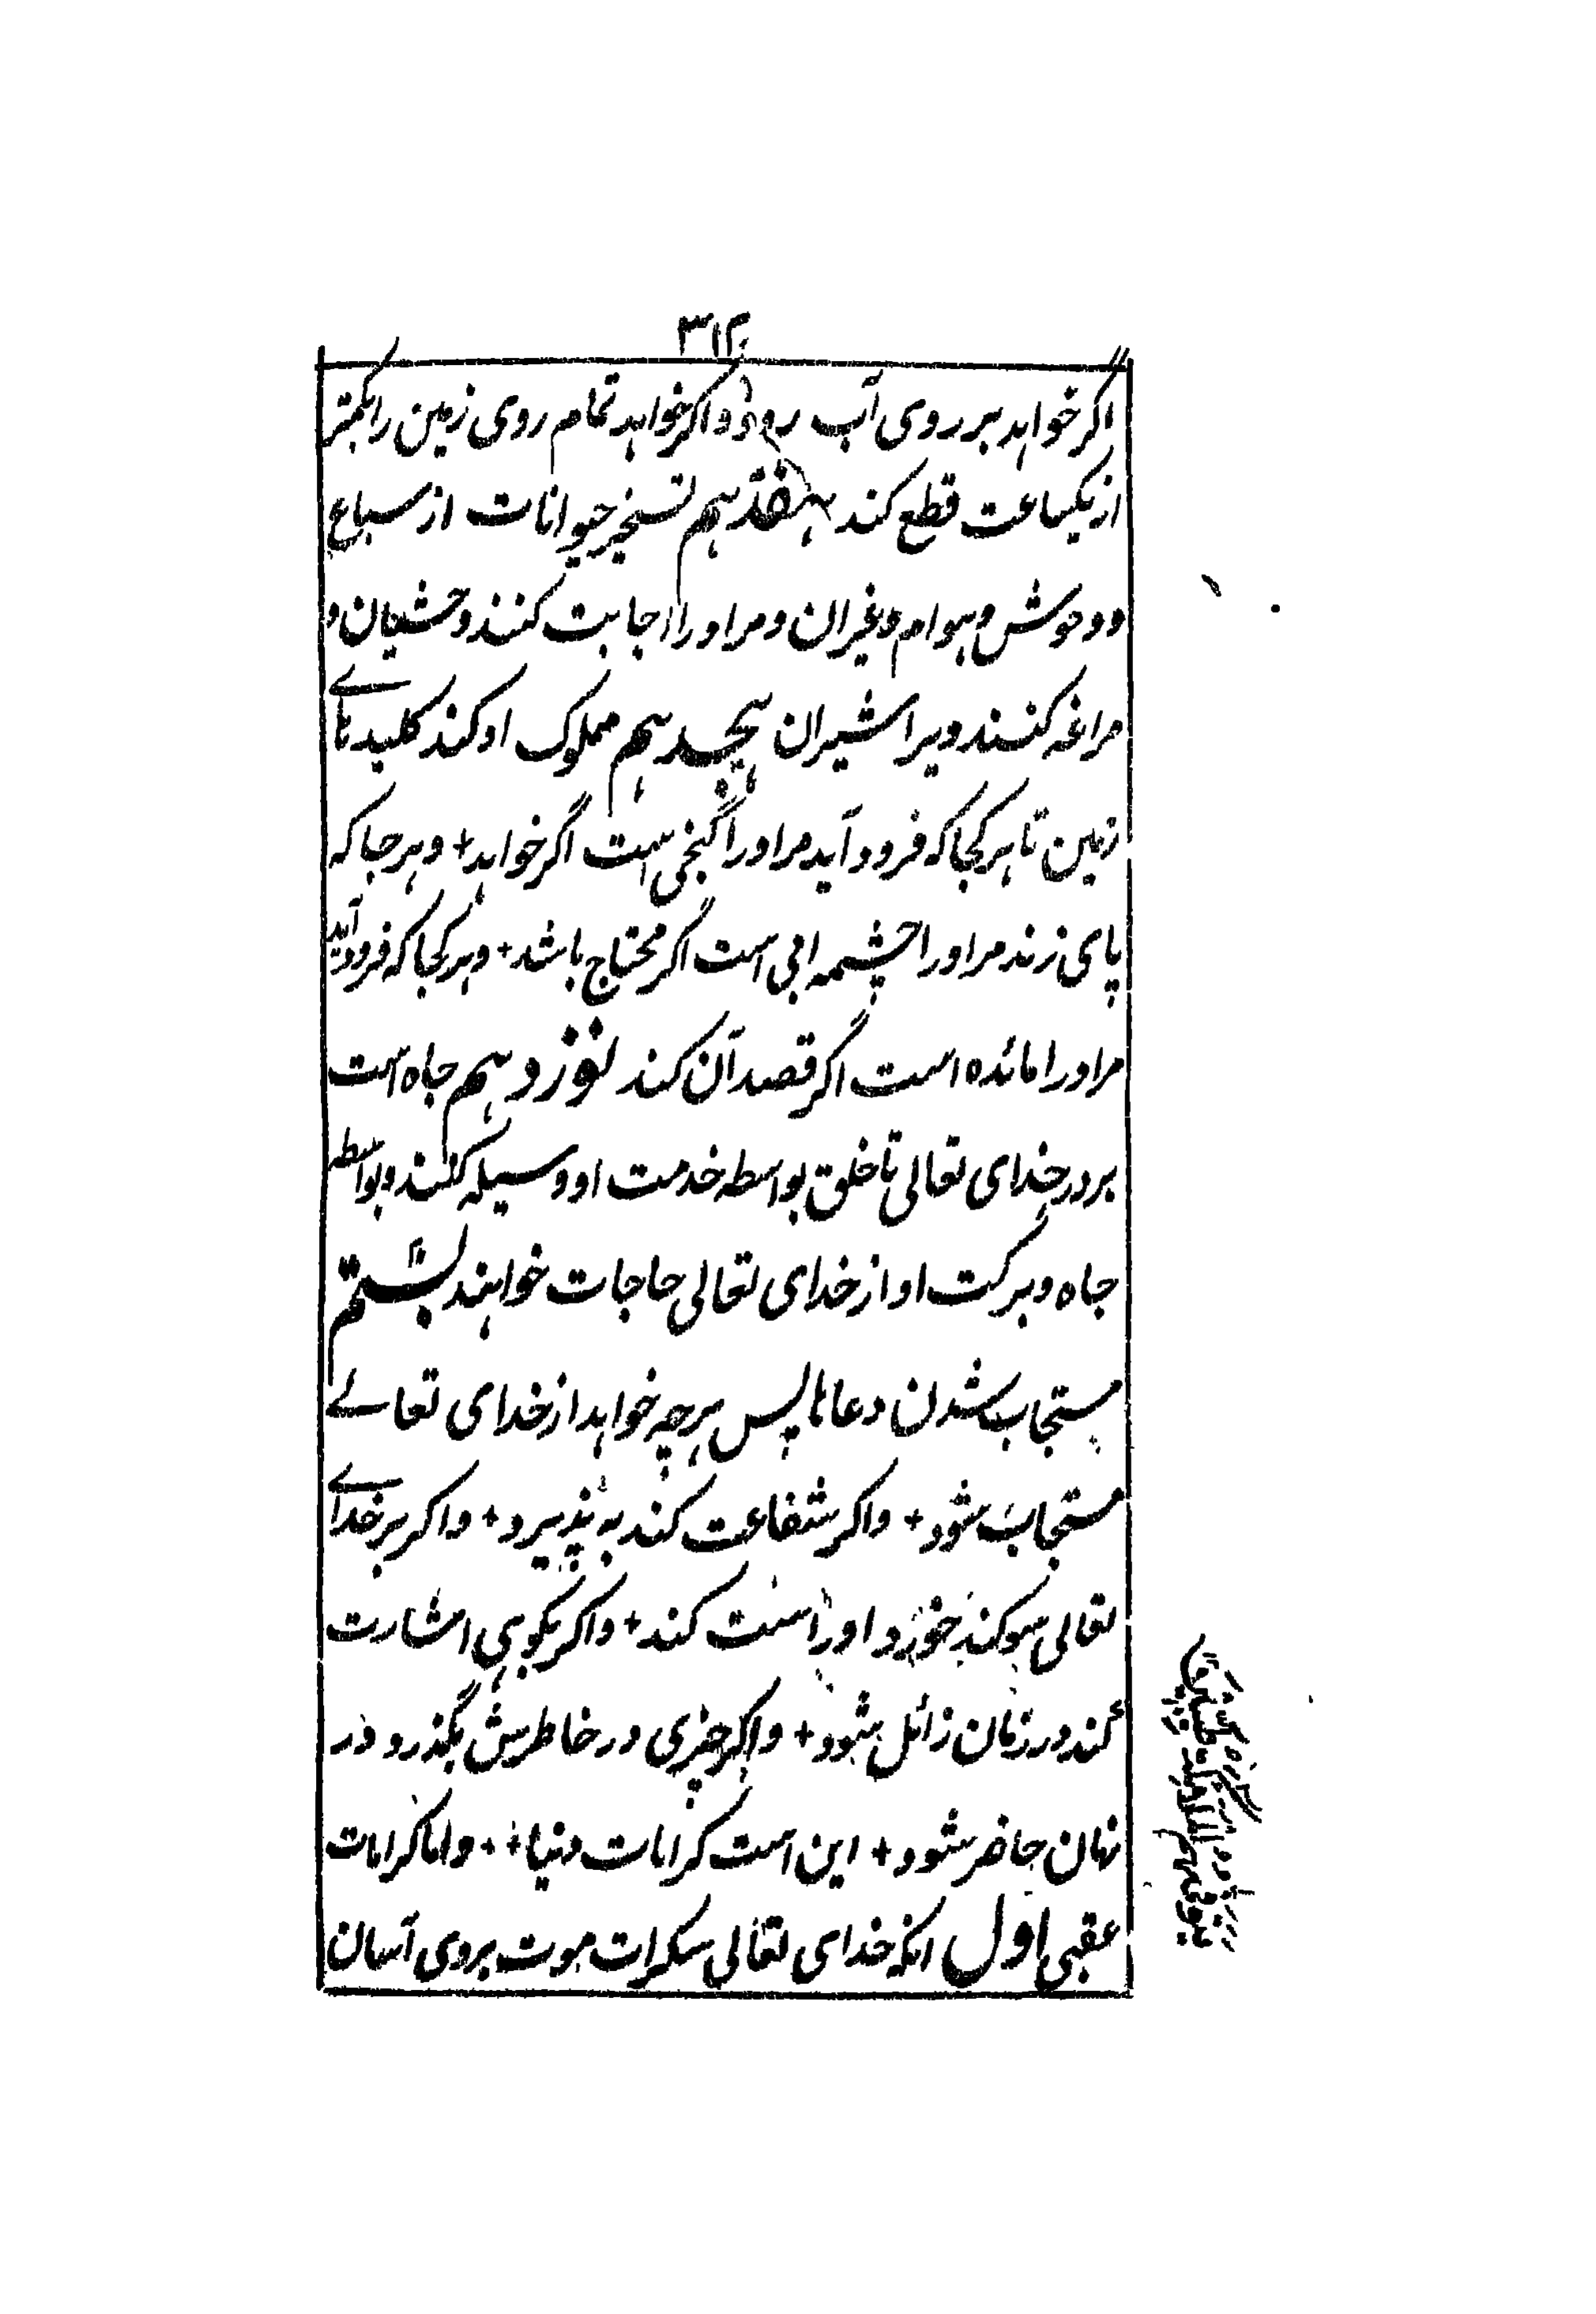 ۳۱۲
اگر خواهد بر روی آب رود و اگر خواهد تمام روی زمین را بکمتر
از یکساعت قطع کند هفدهم تسخیر حیوانات از سباع
و وحوش و هوام و غیر ان و مر او را اجابت کنند وحشیان و
مراغه کنند ویرا شیران هیجدهم مملوک او کند کلیدهاے
زمین تا هر کجا که فرود آید مر او را گنجی است اگر خواهد + و هر جا که
پای زند مر او را چشمه ابی است اگر محتاج باشد + و هر کجا که فرود آید
مر او را مائده است اگر قصد آن کند نوزدهم جاه است
بر در خدای تعالی تا خلق بواسطه خدمت او وسیله کنند و بواسطه
جاه و برکت او از خدای تعالی حاجات خواهند بستم
مستجاب شدن دعاها پس هرچه خواهد از خدای تعالے
مستجاب شود + و اگر شفاعت کند به پذیرد + و اگر بر خداے
تعالی سوکند خورد او راست کند + و اگر بکوهی اشارت
کند در زمان زائل شود + و اگر چیزی در خاطرش بگذرد در
زمان حاضر شود + این است کرامات دنیا ++ و اما کرامات
عقبی اول انکه خدای تعالی سکرات موت بر وی آسان